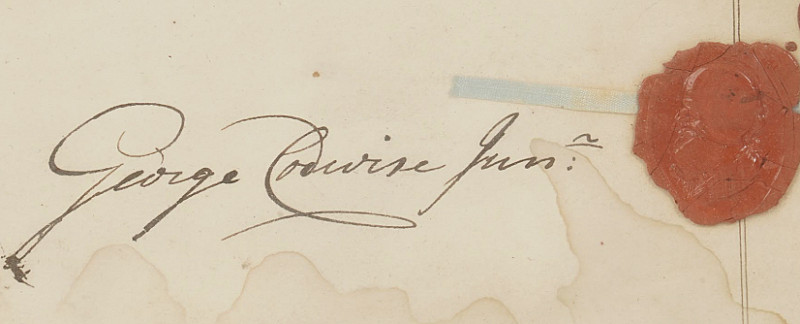 George Codwise Junr.